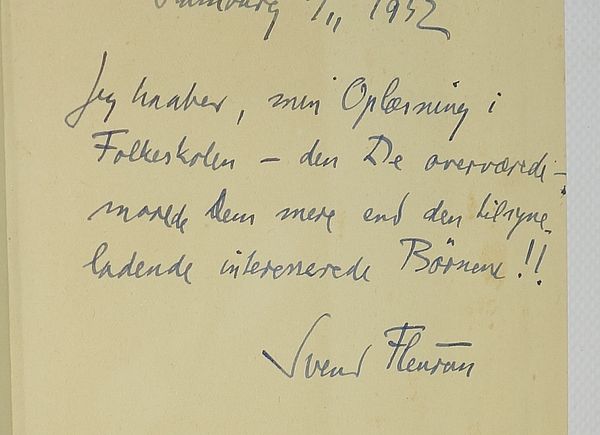 Hamburg 9/11 1932
Jeg haaber, min Oplæsning i
Folkeskolen – den De overværede –
morede Dem mere end den tilsyne-
ladende interesserede Börnene!!
Svend Fleuron